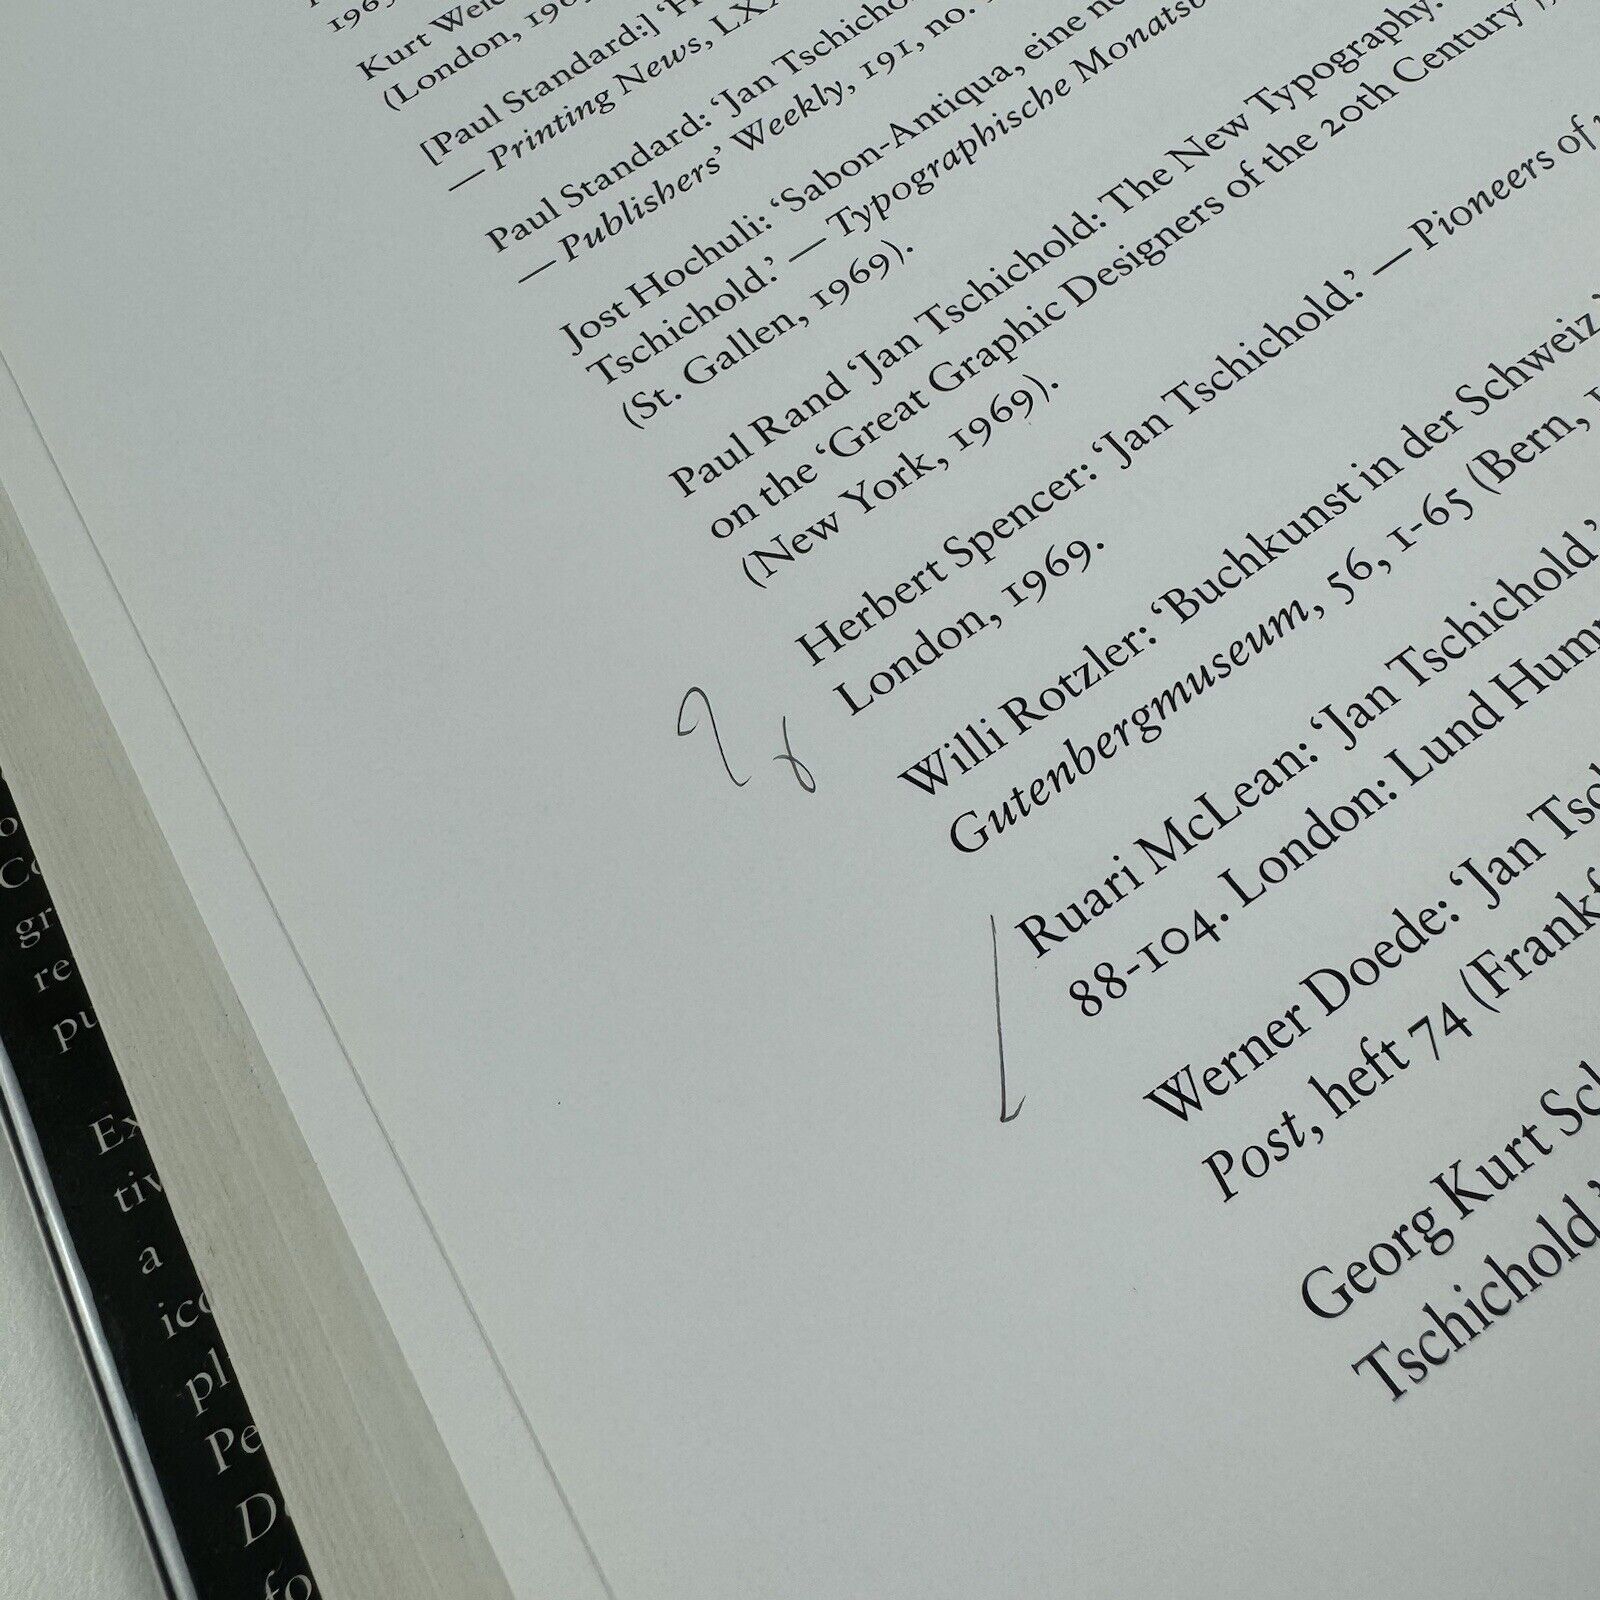 Kurt
(London,
[Paul Standard:]
— Printing News,
Paul Standard: ‘Jan
— Publishers’ Weekly, 191, no.
Jost Hochuli: ‘Sabon-Antiqua, eine
Tschichold.’ — Typographische
(St. Gallen, 1969).
Paul Rand ‘Jan Tschichold: The New Typography.
on the ‘Great Graphic Designers of the 20th Century
(New York, 1969).
Herbert Spencer: ‘Jan Tschichold.’ — Pioneers of
London, 1969.
Willi Rotzler: ‘Buchkunst in der Schweiz.’
Gutenbergmuseum, 56, 1-65 (Bern,
Ruari McLean: ‘Jan Tschichold,’
88-104. London: Lund
Werner Doede: ‘Jan
Post, heft 74
Georg Kurt
Tschichold,’
a